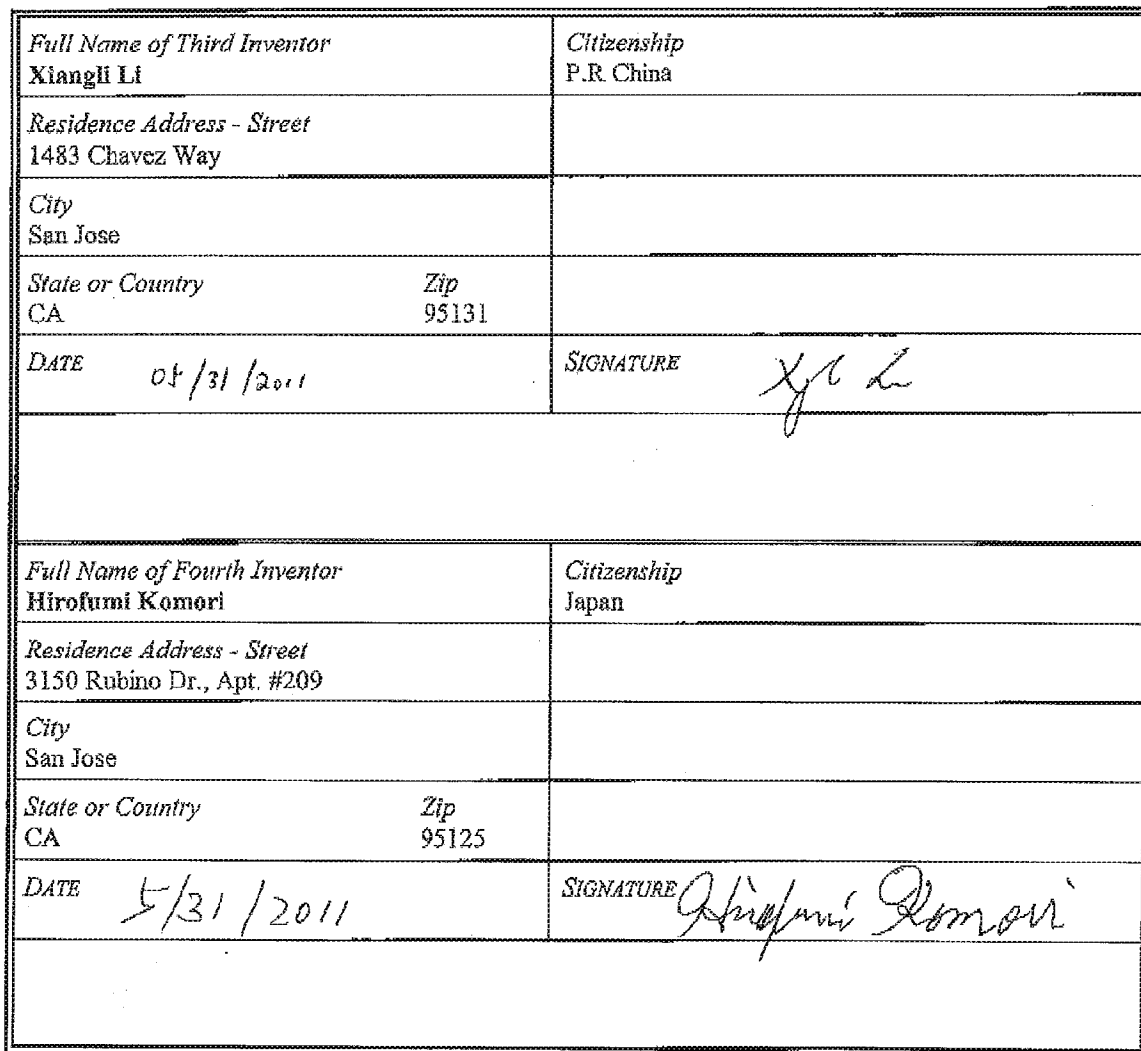 Full Name of Third Inventor
Xiangli Li
Citizenship
P.R. China
Residence Address - Street
1483 Chavez Way
City
San Jose
State or Country Zip
CA 95131
DATE 05/31/2011
SIGNATURE
Full Name of Fourth Inventor
Hirofumi Komori
Citizenship
Japan
Residence Address - Street
3150 Rubino Dr., Apt. #209
City
San Jose
State or Country Zip
CA 95125
DATE 5/31/2011
SIGNATURE Hirofumi Komori